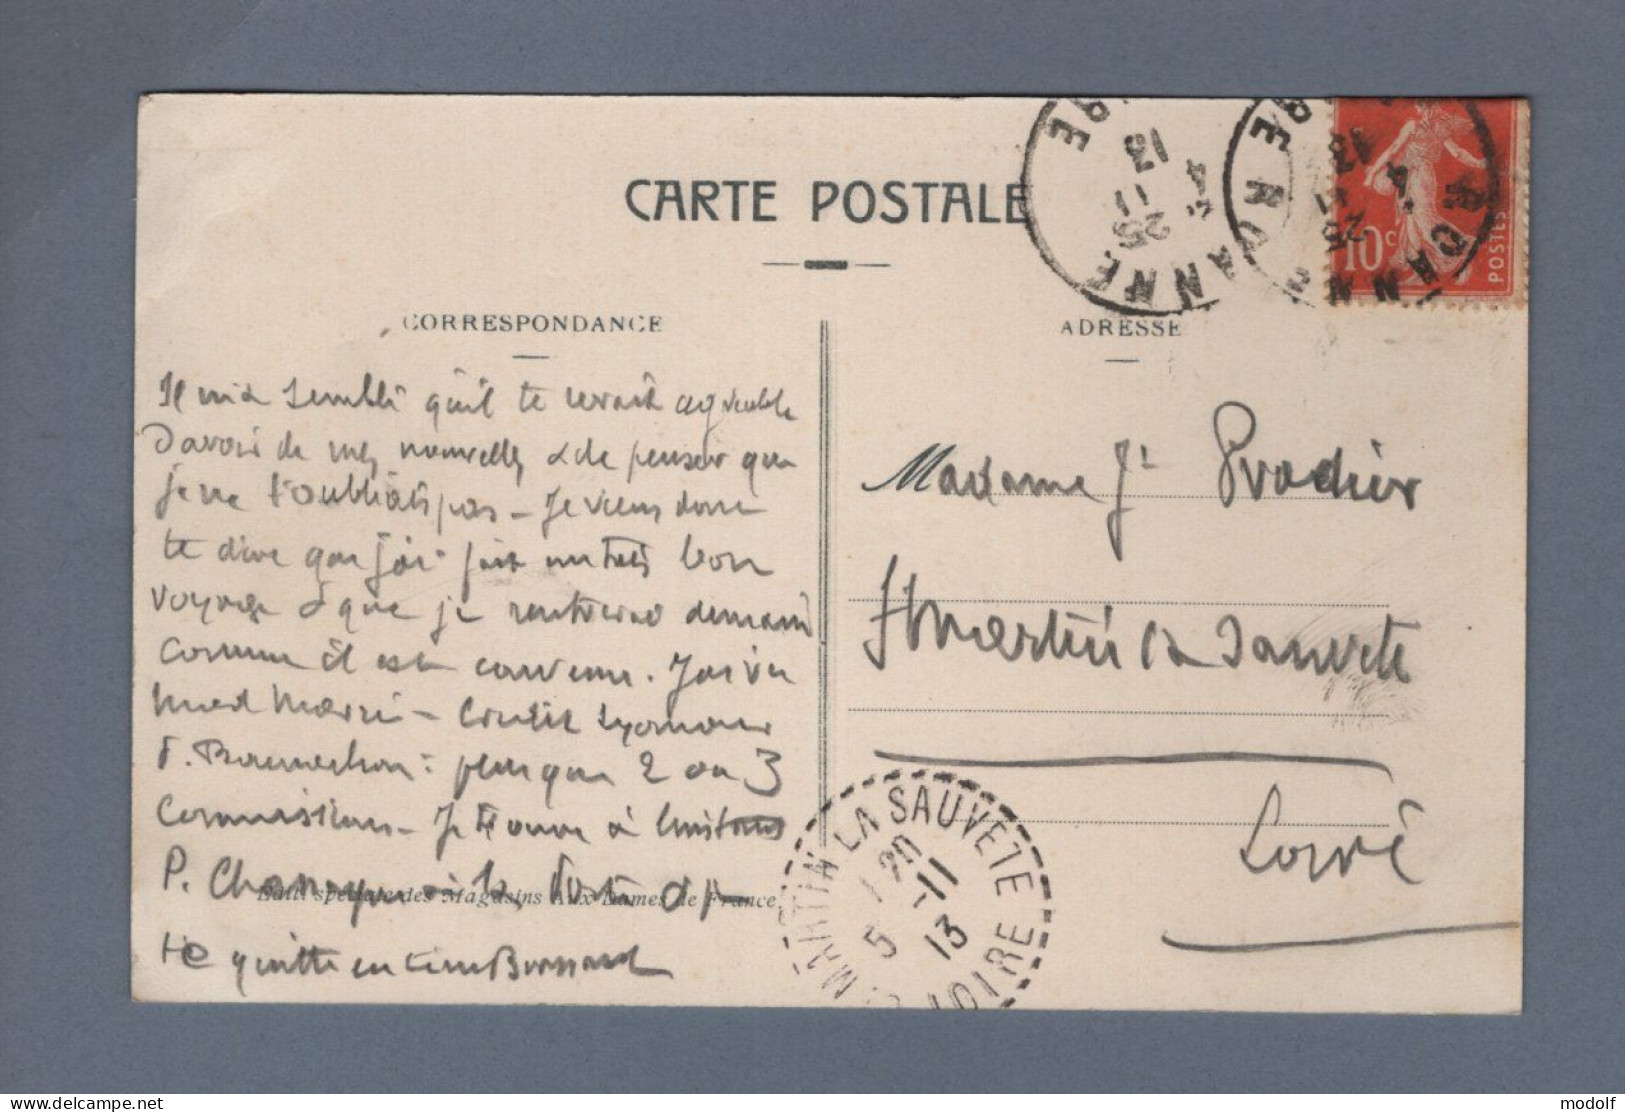 CARTE POSTALE
CORRESPONDANCE
ADRESSE
Il m'a semblé qu'il te serait agréable
d'avoir de mes nouvelles & de penser que
je ne t'oubliais pas - Je viens donc
te dire que j'ai fait un très bon
voyage & que je rentrerai demain
comme il est convenu. J'ai vu
Med Marri - Crédit Lyonnais
plus que 2 ou 3
commissions - Je trouve à
P.
te quitte en
Edit. spéciale des Magasins Aux Dames de France.
Madame Jh Prodier
St Martin la Sauveté
Loire
ROANNE
25
4 - 11
13
ROANNE
25
4 - 11
13
10c
POSTES
MARTIN LA SAUVETE
1 20
5 -11
13
LOIRE
modolf